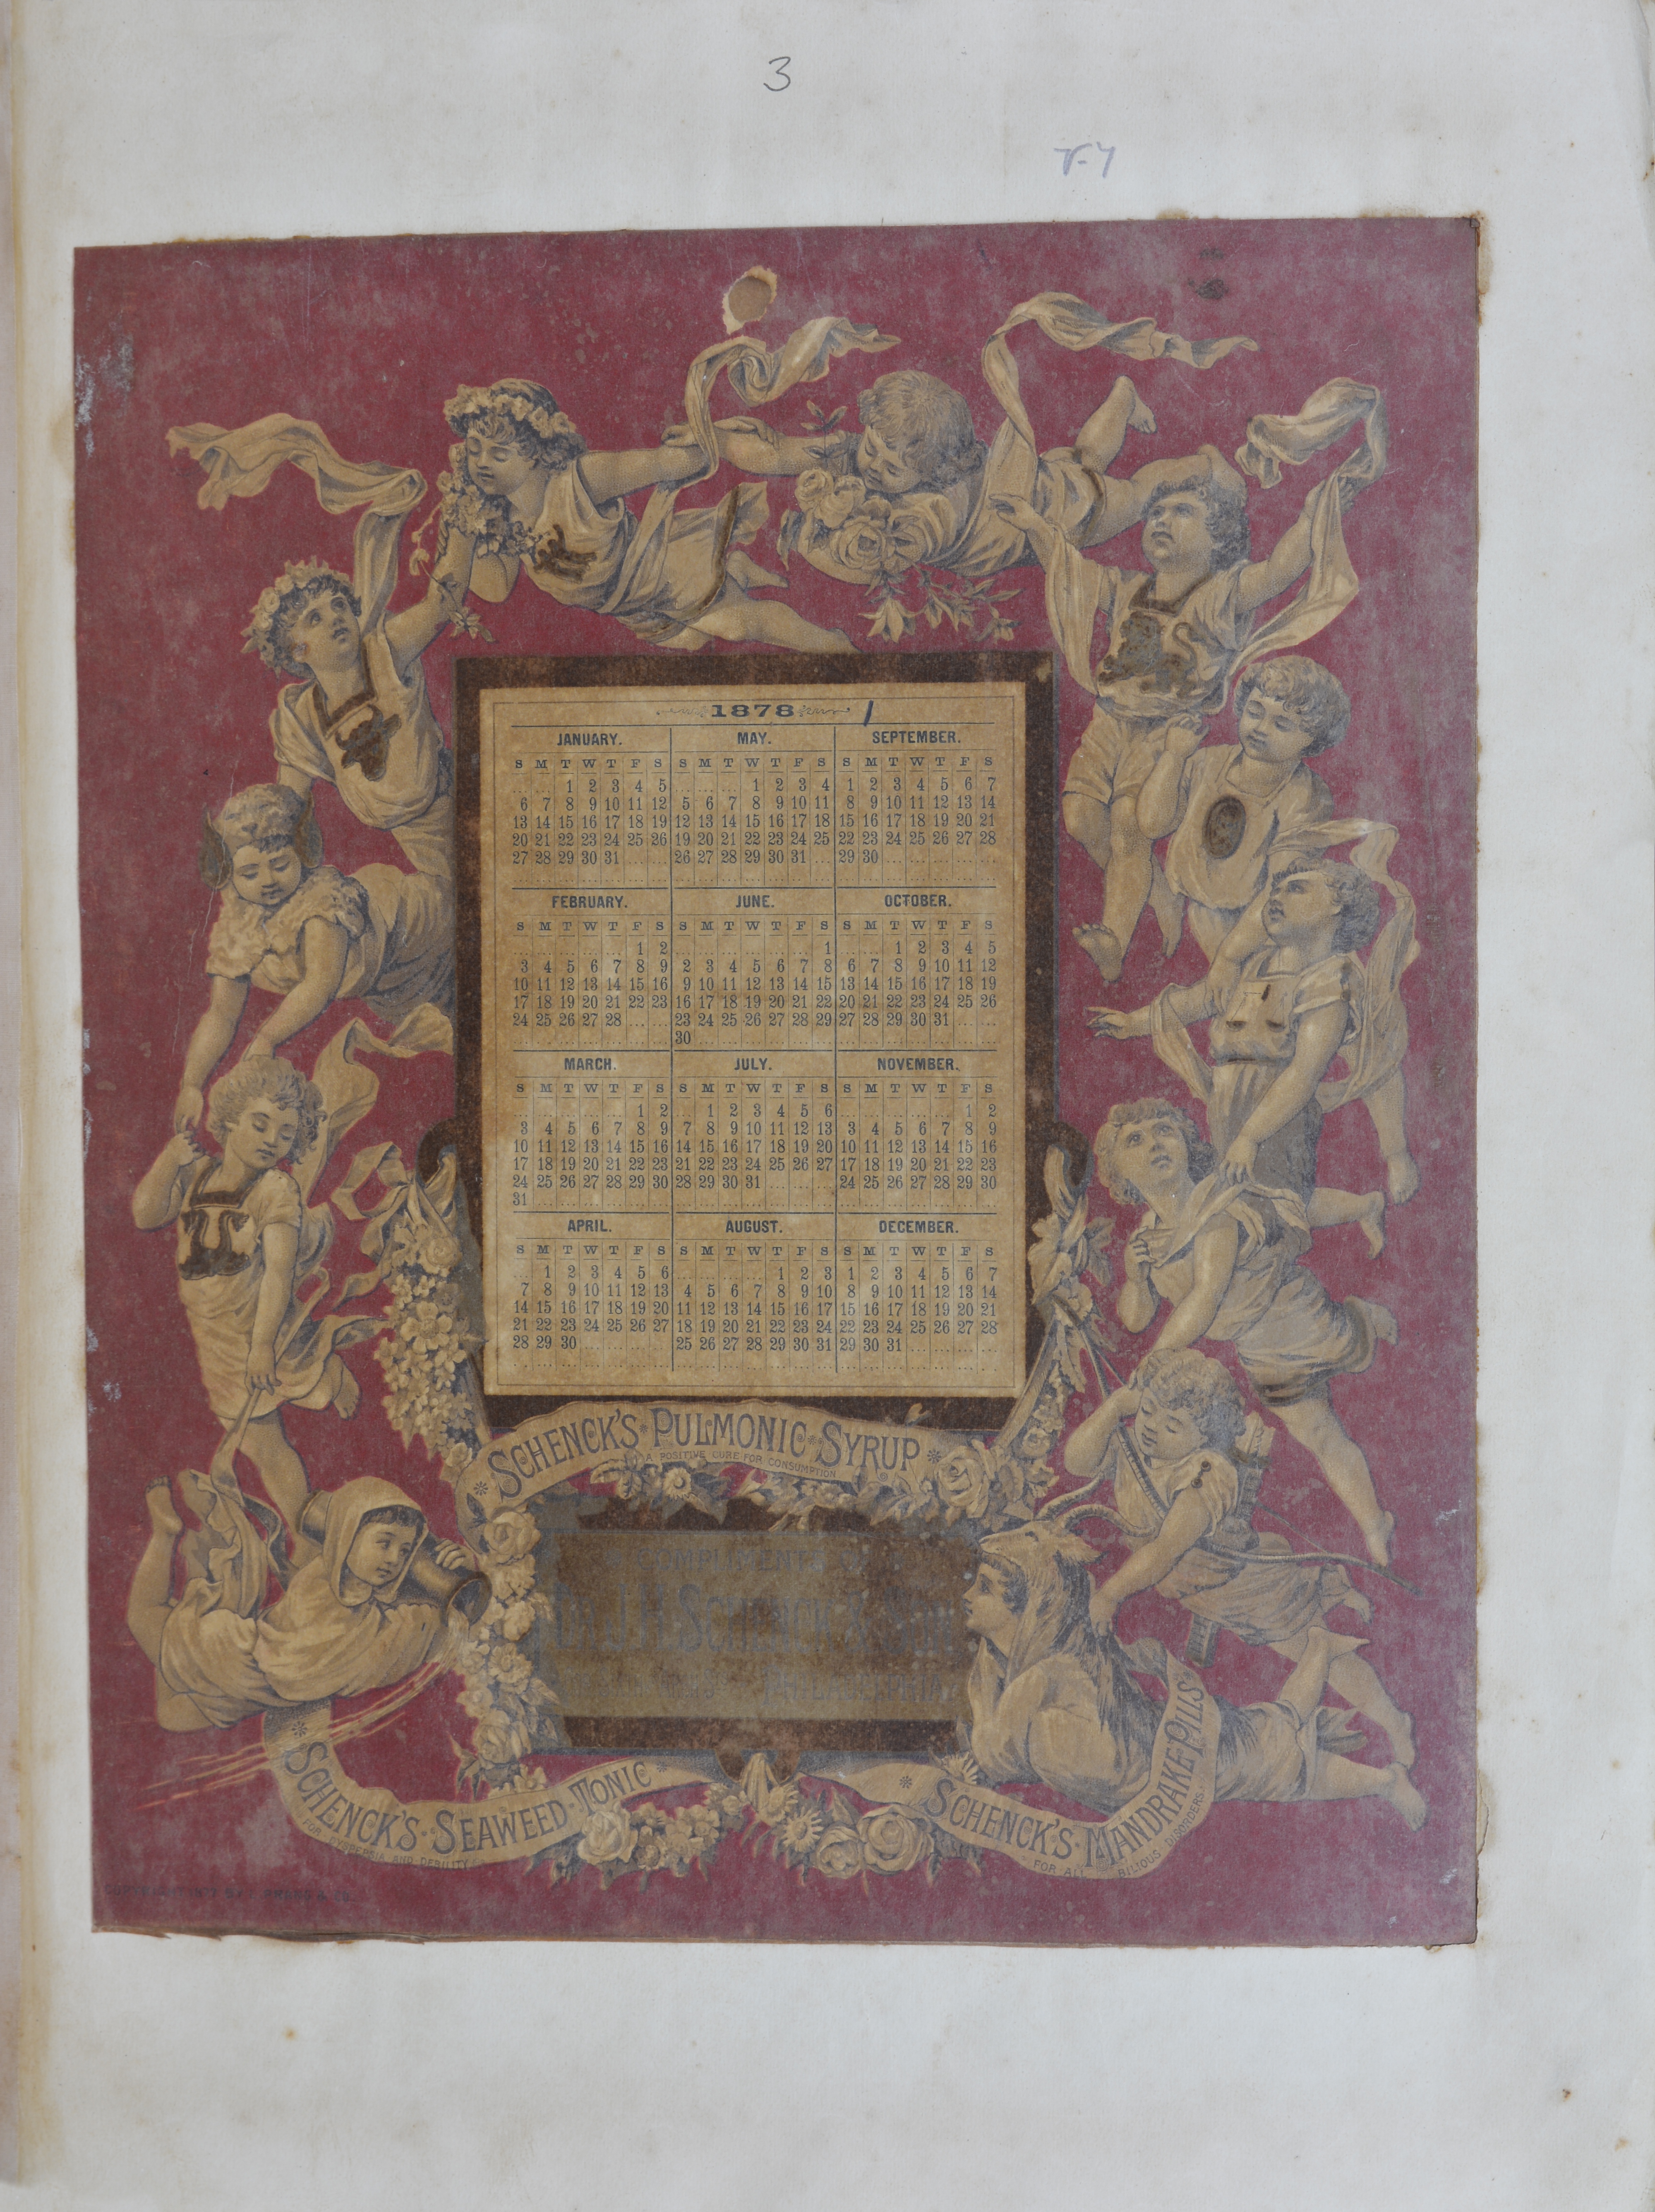 3
1878
JANUARY.
S M T W T F S
1 2 3 4 5
6 7 8 9 10 11 12
13 14 15 16 17 18 19
20 21 22 23 24 25 26
27 28 29 30 31
FEBRUARY.
S M T W T F S
1 2
3 4 5 6 7 8 9
10 11 12 13 14 15 16
17 18 19 20 21 22 23
24 25 26 27 28
MARCH.
S M T W T F S
1 2
3 4 5 6 7 8 9
10 11 12 13 14 15 16
17 18 19 20 21 22 23
24 25 26 27 28 29 30
31
APRIL.
S M T W T F S
1 2 3 4 5 6
7 8 9 10 11 12 13
14 15 16 17 18 19 20
21 22 23 24 25 26 27
28 29 30
MAY.
S M T W T F S
1 2 3 4
5 6 7 8 9 10 11
12 13 14 15 16 17 18
19 20 21 22 23 24 25
26 27 28 29 30 31
JUNE.
S M T W T F S
1
2 3 4 5 6 7 8
9 10 11 12 13 14 15
16 17 18 19 20 21 22
23 24 25 26 27 28 29
30
JULY.
S M T W T F S
1 2 3 4 5 6
7 8 9 10 11 12 13
14 15 16 17 18 19 20
21 22 23 24 25 26 27
28 29 30 31
AUGUST.
S M T W T F S
1 2 3
4 5 6 7 8 9 10
11 12 13 14 15 16 17
18 19 20 21 22 23 24
25 26 27 28 29 30 31
SEPTEMBER.
S M T W T F S
1 2 3 4 5 6 7
8 9 10 11 12 13 14
15 16 17 18 19 20 21
22 23 24 25 26 27 28
29 30
OCTOBER.
S M T W T F S
1 2 3 4 5
6 7 8 9 10 11 12
13 14 15 16 17 18 19
20 21 22 23 24 25 26
27 28 29 30 31
NOVEMBER.
S M T W T F S
1 2
3 4 5 6 7 8 9
10 11 12 13 14 15 16
17 18 19 20 21 22 23
24 25 26 27 28 29 30
DECEMBER.
S M T W T F S
1 2 3 4 5 6 7
8 9 10 11 12 13 14
15 16 17 18 19 20 21
22 23 24 25 26 27 28
29 30 31
SCHENCK'S PULMONIC SYRUP
A POSITIVE CURE FOR CONSUMPTION
COMPLIMENTS OF
DR. J.H. SCHENCK & SON
PHILADELPHIA.
SCHENCK'S SEAWEED TONIC
FOR DYSPEPSIA AND DEBILITY
SCHENCK'S MANDRAKE PILLS
FOR ALL BILIOUS DISORDERS
COPYRIGHT 1877 BY L. PRANG & CO.